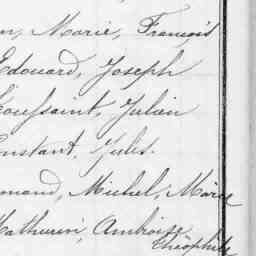 n, Marie, François
Edouard, Joseph
Toussaint, Julien
Constant, Jules.
mand, Michel, Marie
Mathurin, Ambroise,
Théophile